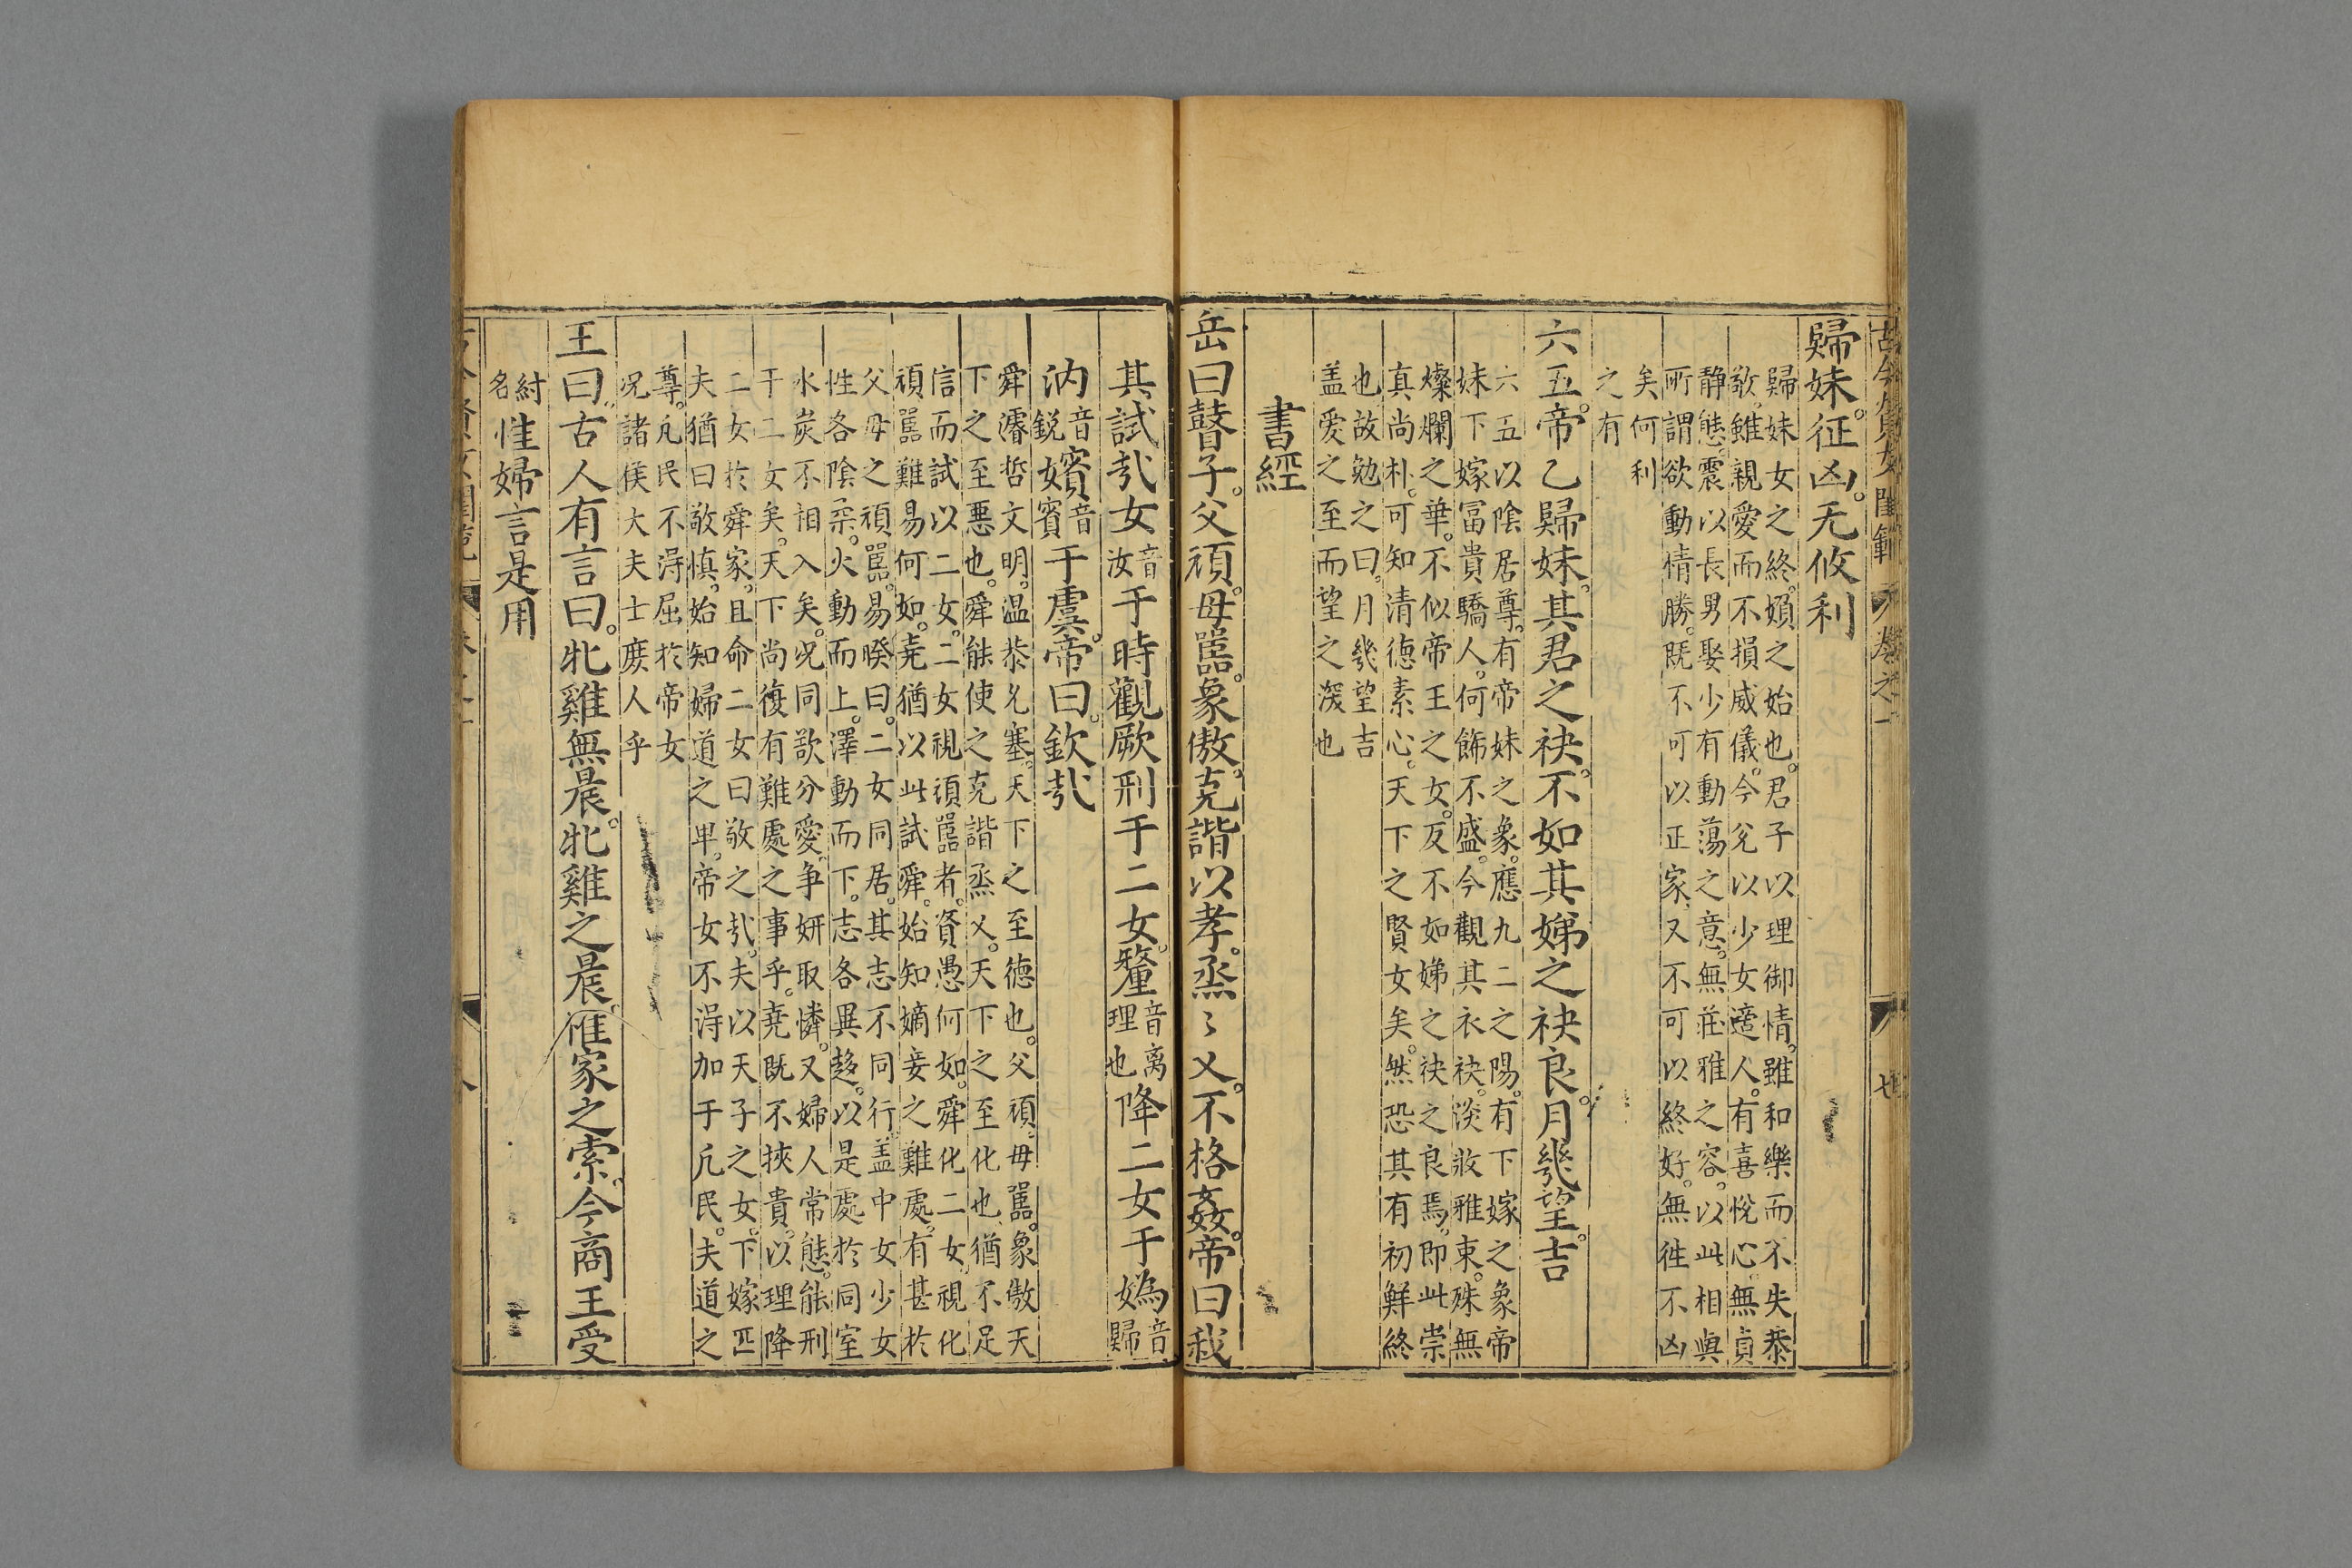 古今賢女閨範　卷之一　七
歸妹。征凶。无攸利
歸妹女之終。嬪之始也。君子以理御情。雖和樂而不失恭
敬。雖親愛而不損威儀。今兌以少女適人。有喜悅心。無貞
静態。震以長男娶少有動蕩之意。無莊雅之容。以此相與
所謂欲動情勝。既不可以正家。又不可以終好。無徃不凶
矣何利
之有
六五。帝乙歸妹。其君之袂。不如其娣之袂良。月幾望。吉
六五以陰居尊。有帝妹之象。應九二之陽。有下嫁之象帝
妹下嫁冨貴驕人。何飾不盛。今觀其衣袂。淡妝雅束。殊無
燦爛之華。不似帝王之女。反不如娣之袂之良焉。即此崇
真尚朴。可知清德素心。天下之賢女矣。然恐其有初鮮終
也故勉之曰。月幾望吉
盖爱之至而望之深也
書經
岳曰瞽子。父頑。母嚚。象傲。克諧以孝。烝〻乂。不格姦。帝曰我
其試㢤女音汝于時觀厥刑于二女。釐音离理也降二女于嬀音歸
汭音鋭嬪音賓于虞。帝曰。欽㢤
舜濬哲文明。温恭允塞。天下之至德也。父頑。母嚚。象傲天
下之至悪也。舜能使之克諧烝乂。天下之至化也。猶不足
信而試以二女。二女視頑嚚者。賢愚何如。舜化二女。視化
頑嚚難易何如。堯猶以此試舜。始知嫡妾之難處。有甚於
父母之頑嚚。易暌曰。二女同居。其志不同行。盖中女少女
性各陰柔。火動而上。澤動而下。志各異趍。以是處於同室
水炭不相入矣。况同歡分愛。争妍取憐。又婦人常態。能刑
于二女矣。天下尚復有難處之事乎。堯既不挾貴。以理降
二女於舜家。且命二女曰敬之㢤。夫以天子之女。下嫁匹
夫猶曰敬慎。始知婦道之卑。帝女不淂加于凢民。夫道之
尊。凢民不淂屈於帝女
况諸侯大夫士庻人乎
王曰。古人有言曰。牝雞無晨。牝雞之晨。惟家之索。今商王受
紂名惟婦言是用